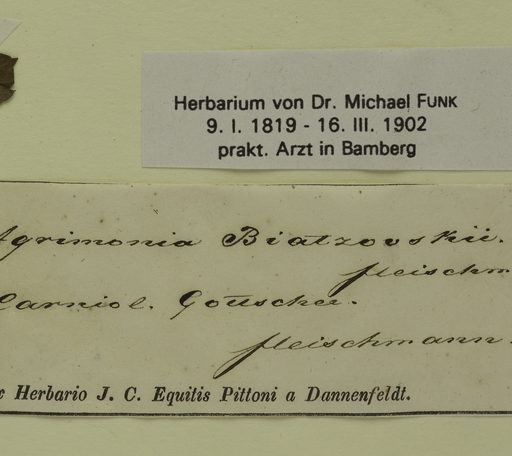 Herbarium von Dr. Michael FUNK
9. I. 1819 - 16. III. 1902
prakt. Arzt in Bamberg
Agrimonia Biatzovskii.
fleischm
Carniol. Gottschee.
fleischmann.
Herbario J. C. Equitis Pittoni a Dannenfeldt.